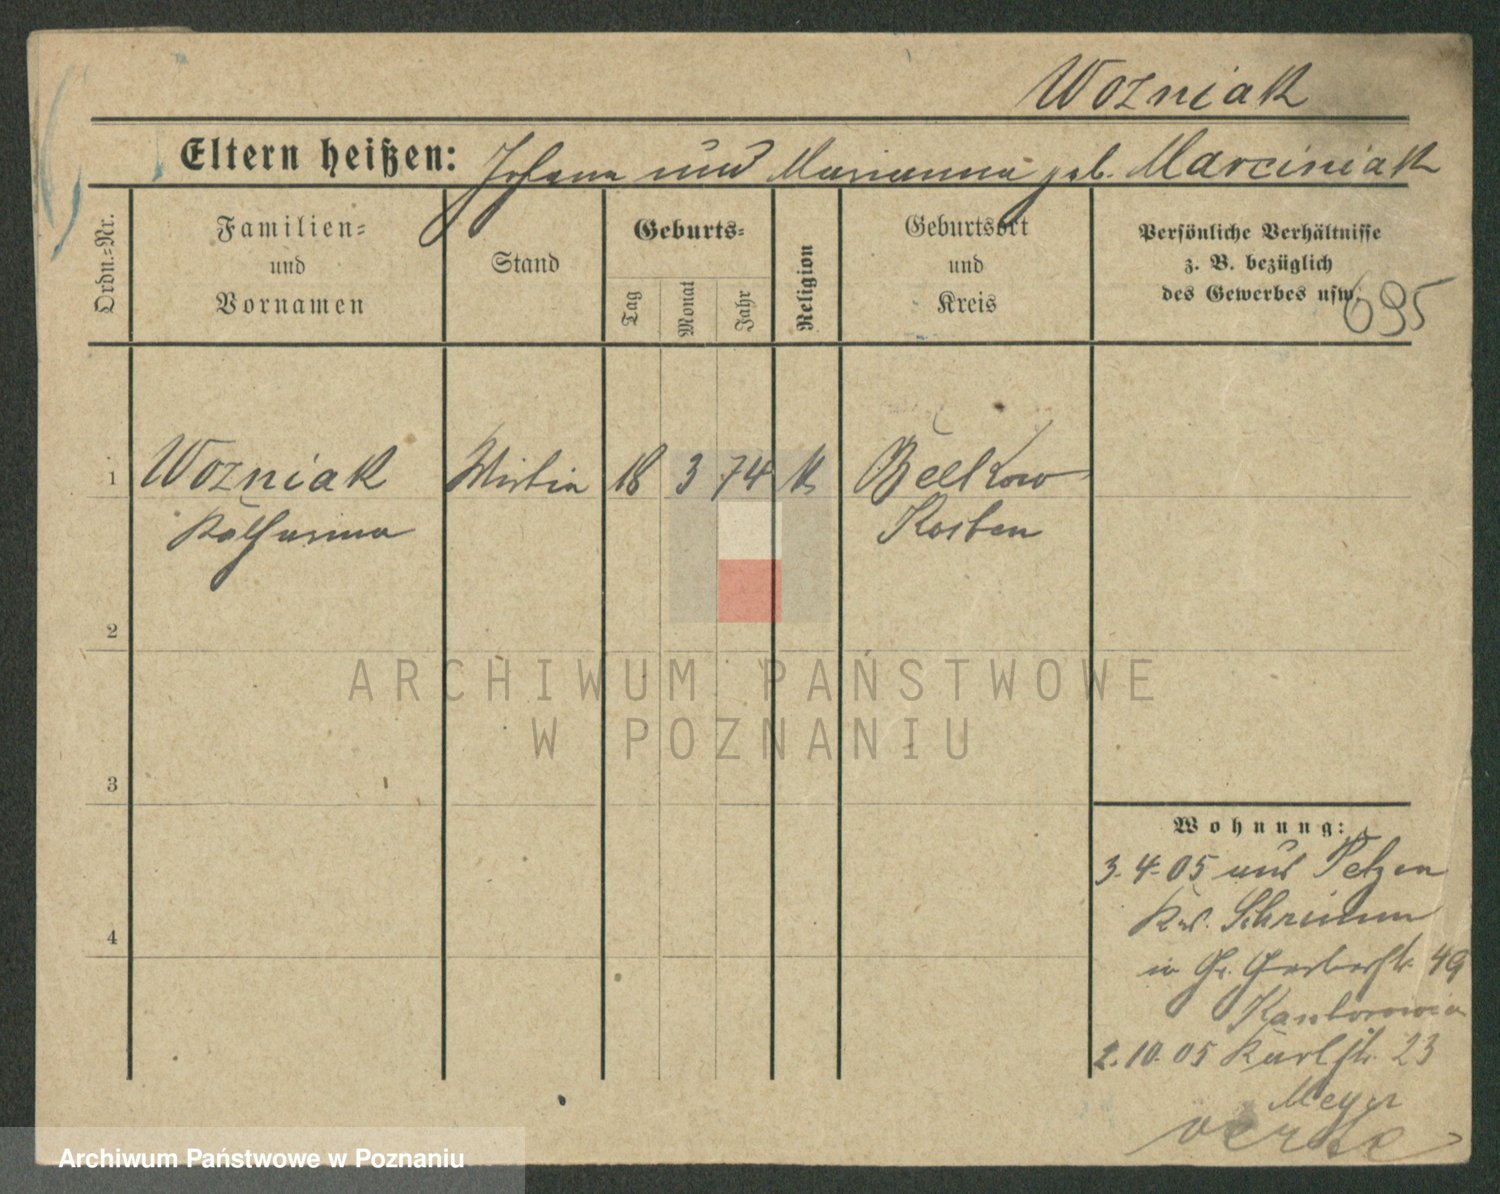 Wozniak
Eltern heißen: Johann und Marianna geb. Marciniak
Ordn.-Nr.
Familien-
und
Vornamen
Stand
Geburts-
Tag
Monat
Jahr
Religion
Geburtsort
und
Kreis
Persönliche Verhältnisse
z. B. bezüglich
des Gewerbes usw.
695
1 Wozniak 18 3 74 k Bełkow
Katharina Kosten
2
3
4
ARCHIWUM PAŃSTWOWE
W POZNANIU
Wohnung:
3.4.05 aus Petzen
Krs. Schrimm
in Gr. Gerberstr. 49
2.10.05 Karlstr. 23
Meyer
Archiwum Państwowe w Poznaniu